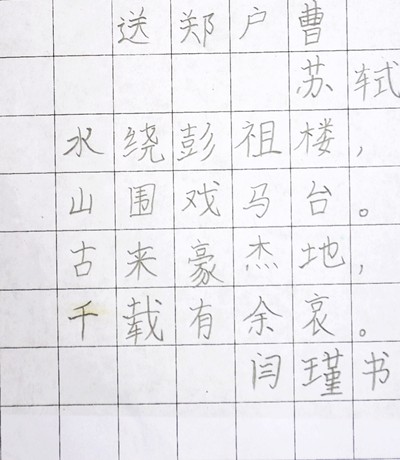 送郑户曹
苏轼
水绕彭祖楼，
山围戏马台。
古来豪杰地，
千载有余哀。
闫瑾书